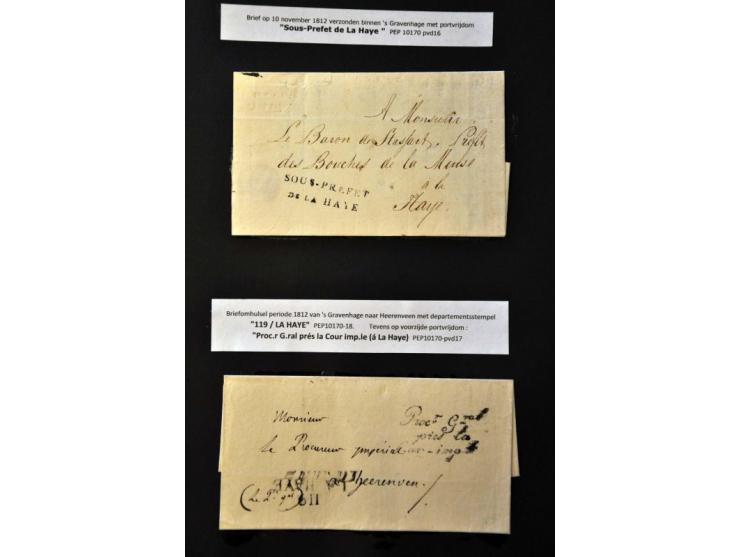 Brief op 10 november 1812 verzonden binnen 's Gravenhage met portvrijdom
"Sous-Prefet de La Haye " PEP 10170 pvd16
A Monsieur
Le Baron de Stassart, Préfet
des Bouches de la Meuse
à la
Haye.
SOUS-PREFET
DE LA HAYE
Briefomhulsel periode 1812 van 's Gravenhage naar Heerenveen met departementsstempel
"119 / LA HAYE" PEP10170-18. Tevens op voorzijde portvrijdom :
"Proc.r G.ral prés la Cour imp.le (á La Haye) PEP10170-pvd17
Monsieur
Proc.r G.ral
près la
Le Procureur impérial
à heerenveen.
LA HAYE
119